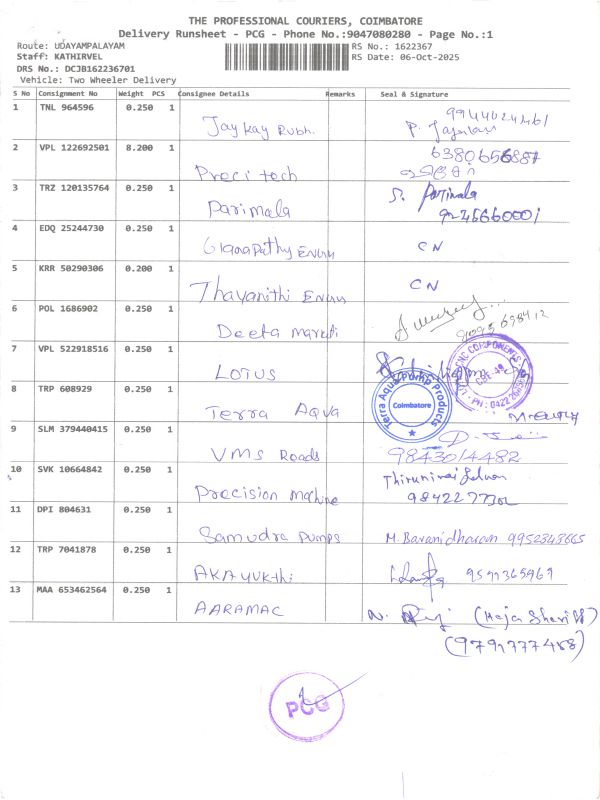 THE PROFESSIONAL COURIERS, COIMBATORE
Delivery Runsheet - PCG - Phone No.:9047080280 - Page No.:1
Route: UDAYAMPALAYAM RS No.: 1622367
Staff: KATHIRVEL RS Date: 06-Oct-2025
DRS No.: DCJB162236701
Vehicle: Two Wheeler Delivery
S No Consignment No Weight PCS Consignee Details Remarks Seal & Signature
1 TNL 964596 0.250 1 Jaykay Rubh. P.
2 VPL 122692501 8.200 1 Preci tech
3 TRZ 120135764 0.250 1 Parimala S. Parimala
4 EDQ 25244730 0.250 1 Ganapathy CN
5 KRR 50290306 0.200 1 Thayanithi CN
6 POL 1686902 0.250 1 Deeta
7 VPL 522918516 0.250 1 LOTUS
CNC COMPONENTS
8 TRP 608929 0.250 1 Terra Aqua
Terra Aqua Pump Products
Coimbatore
9 SLM 379440415 0.250 1 VMS Roads 9843014482
10 SVK 10664842 0.250 1 Precision Machine
11 DPI 804631 0.250 1 Samudra Pumps M. Baranidharan
12 TRP 7041878 0.250 1 AKAYUKthi
13 MAA 653462564 0.250 1 AARAMAC N.
PCG